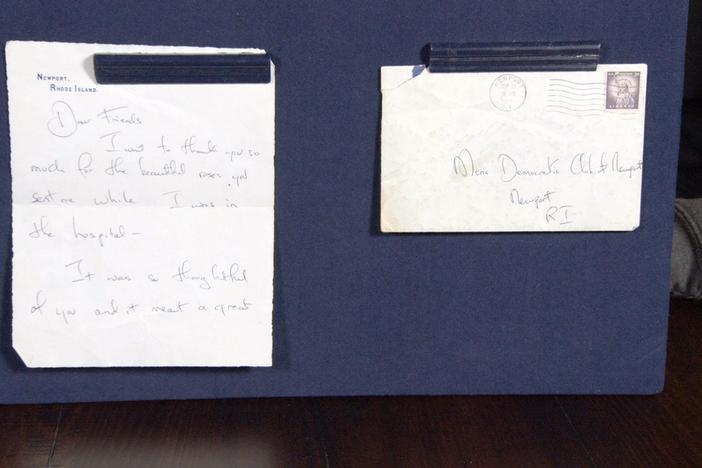 NEWPORT,
RHODE ISLAND.
Dear Friends
I want to thank you so
much for the beautiful roses you
sent me while I was in
the hospital—
It was so thoughtful
of you and it meant a great
NEWPORT
LIBERTY
Mens Democratic Club of Newport
Newport
RI